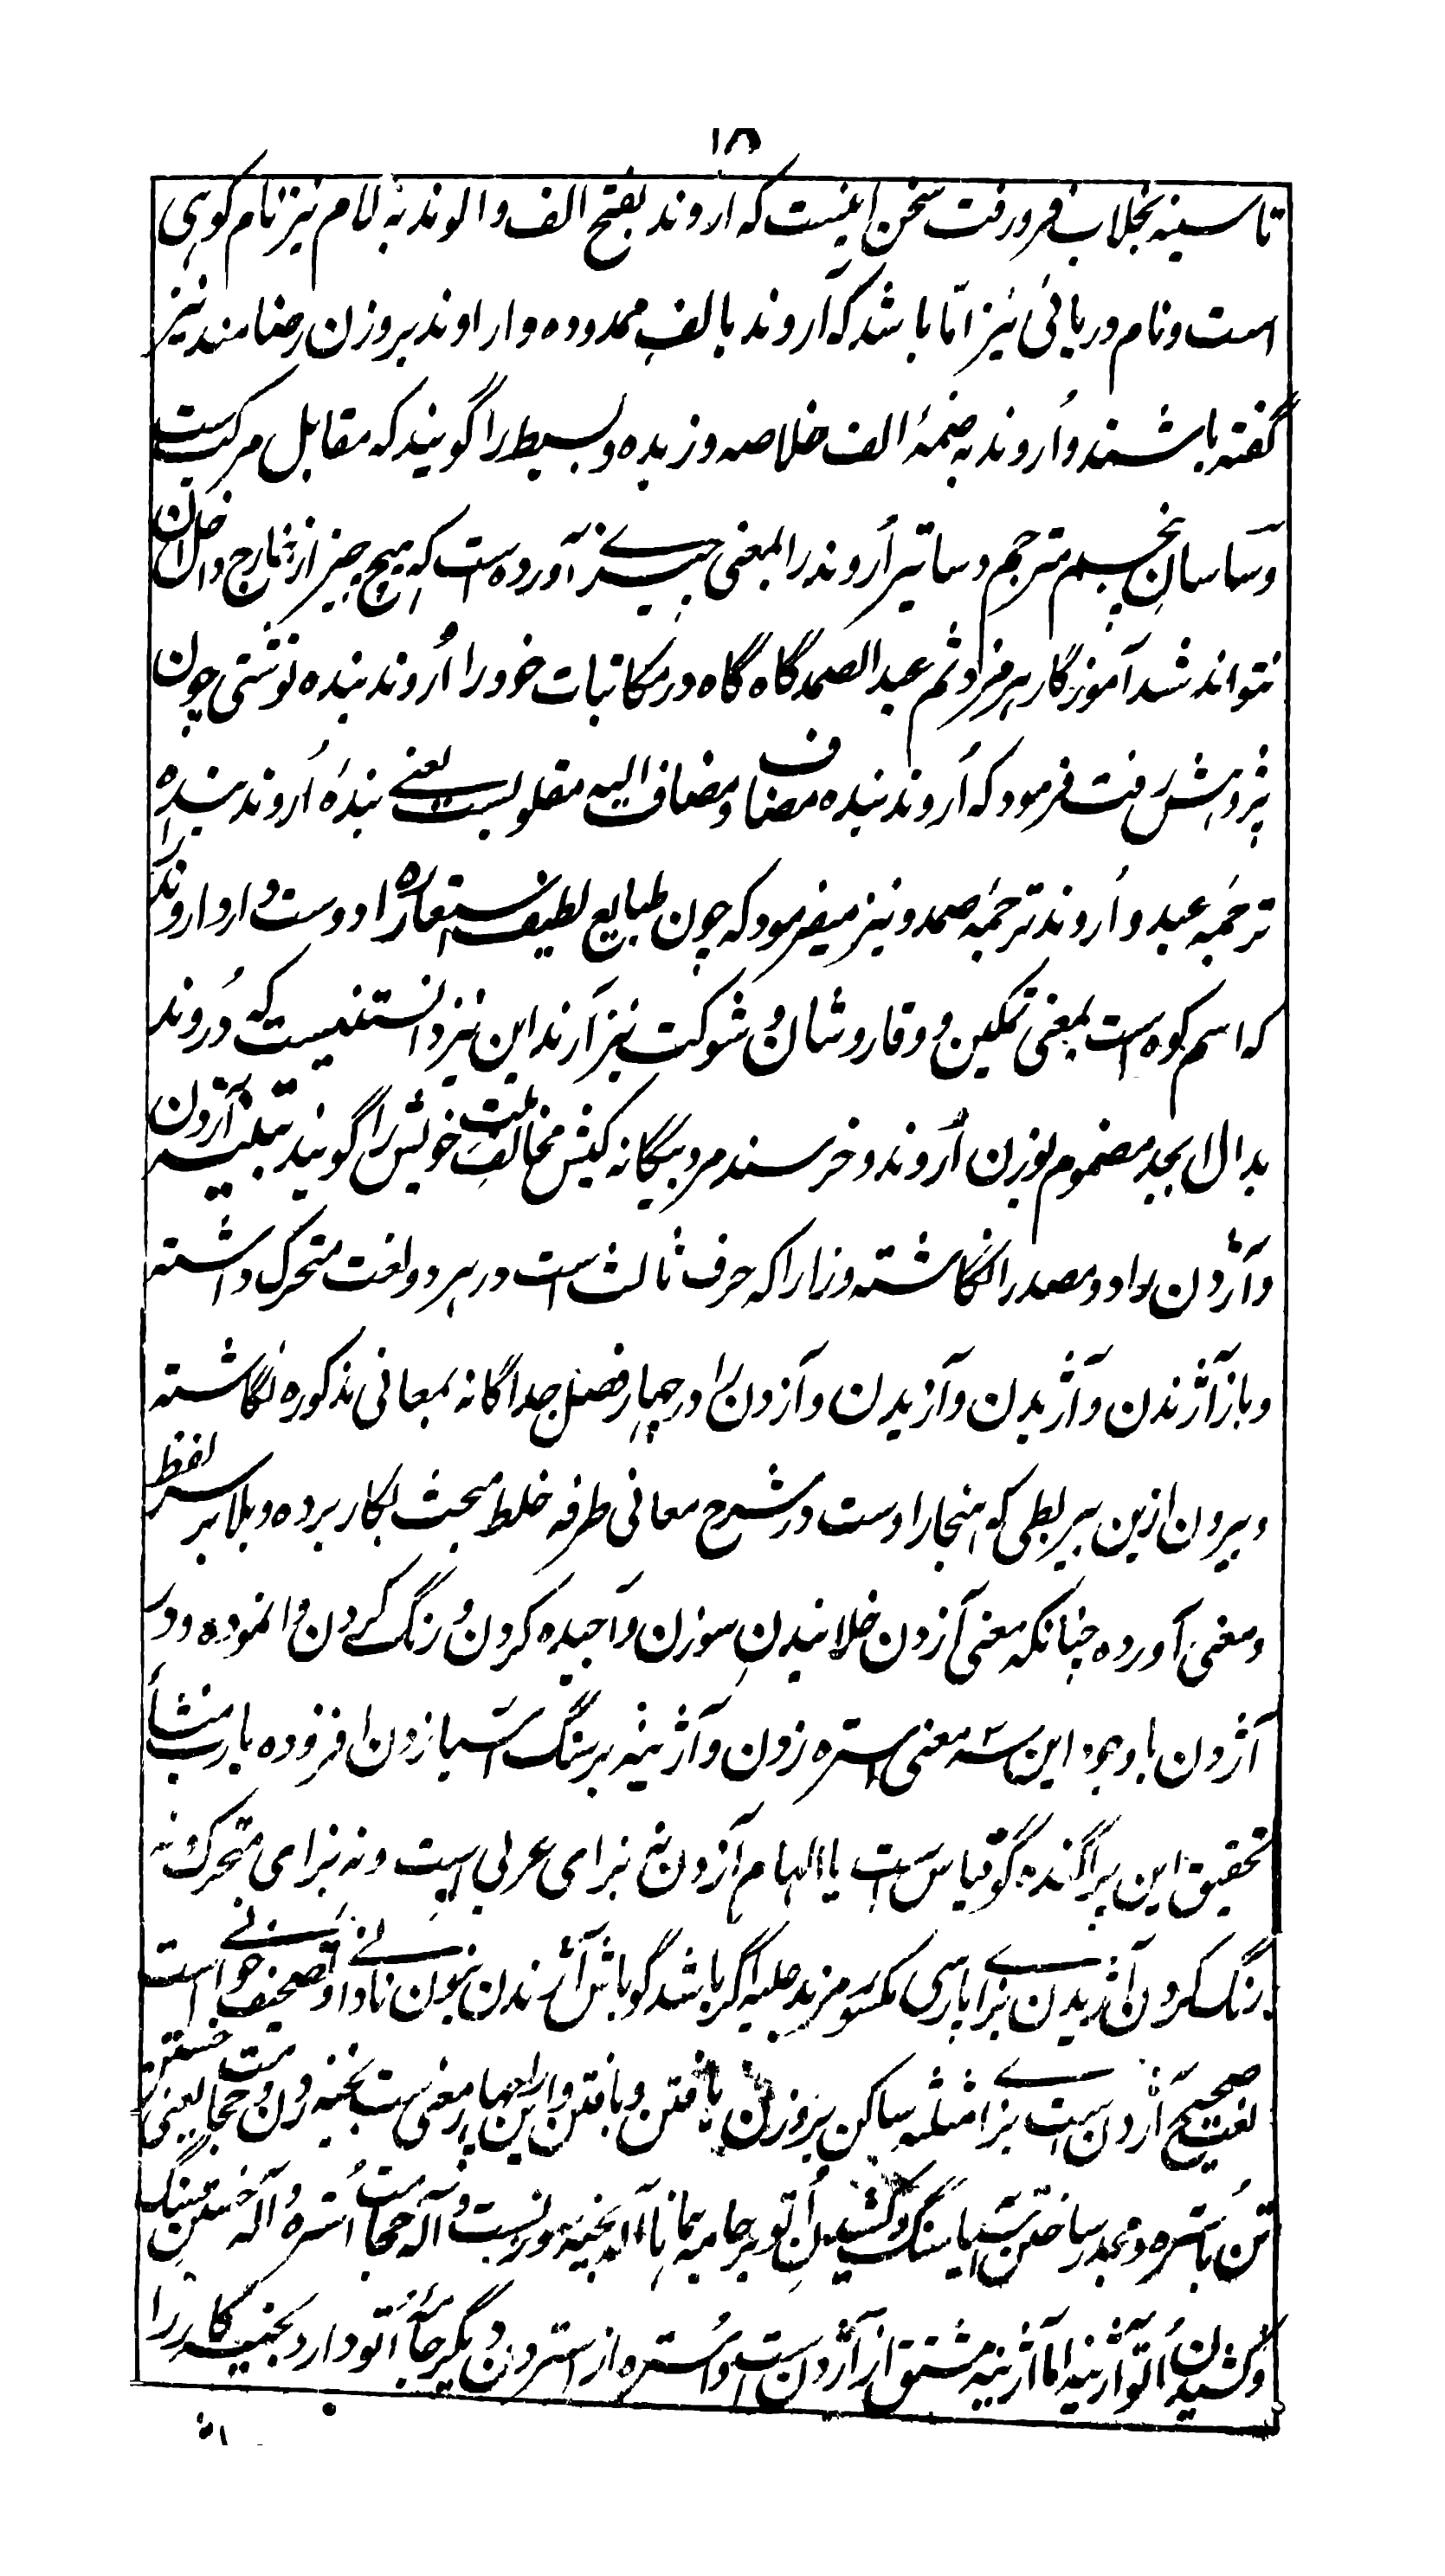 ۱۸
تا سینه بخلاب فرو رفت سخن اینست که اروند بفتح الف و الوند به لام نیز نام کوهی
است و نام دریائی نیز امّا باشد که آروند بالفِ ممدوده و اراوند بروزن رضامند نیز
گفته باشند و اُروند به ضمهٔ الف خلاصه و زبده و بسیط را گویند که مقابل مرکبست
و ساسانِ پنجم مترجم دساتیر اُروند را بمعنی چیزے آورده است که هیچ چیز از خارج داخل آن
نتواند شد آموزگار هرمزد ثم عبد الصمد گاه گاه در مکاتبات خود را اُروند بنده نوشتی چون
پژوهش رفت فرمود که اُروند بنده مضاف و مضاف الیه مقلوبست یعنے بندهٔ اُروند بنده
ترجمهٔ عبد و اُروند ترجمهٔ صمد و نیز میفرمود که چون طبایع لطیف استعاره را دوست دارد اروند را
که اسم کوه است بمعنی تمکین و وقار و شان و شوکت نیز آرند این نیز دانستنیست که دُروند
بدال ابجد مضموم بوزن اُروند و خرسند مرد بیگانه کیش مخالفِ ملت خویش را گویند تنبیه آزدن
و آژدن را دو مصدر انگاشته و زا را که حرف ثالث است در هر دو لغت متحرک داشته
و باز آژندن و آژیدن و آزیدن و آزدن را در چهار فصل جداگانه بمعانی مذکوره نگاشته
و بیرون ازین بیربطی که هنجار اوست در شرح معانی طرفه خلط مبحث بکار برده و بلا بر سر لفظ
و معنی آورده چنانکه معنی آزدن خلانیدنِ سوزن و آجیده کردن و رنگ کردن وانموده و در
آژدن با وجود این سه معنی استره زدن و آژینه بر سنگ آسیا زدن افزوده یارب منشأ
تحقیق این پراگنده گو قیاس است یا الهام آزدن نه بزای عربی است و نه بزای متحرک و نه
رنگ کردن آژیدن بزاے پارسی مکسور مزید علیه اگر باشد گو باش آژندن بنون نادانے و تصحیف خوانے است
لغت صحیح آژدن است بزاے مثلثه ساکن بروزن یافتن و بافتن و این را چهار معنی ست بخیه زدن و حجامت یعنی خستن
تن باستره و نجد ساختن آسیا سنگ و کشیدنِ اُتو بر جامه همانا آله بخیه سوزنست و آله حجامت اُستره و آله خستن سنگ
و کشیدن اُتو آژینه اما آژینه مشتق از آژدن است و اُستره از استردن دیگر جامه اُتودار و بخیه کار را